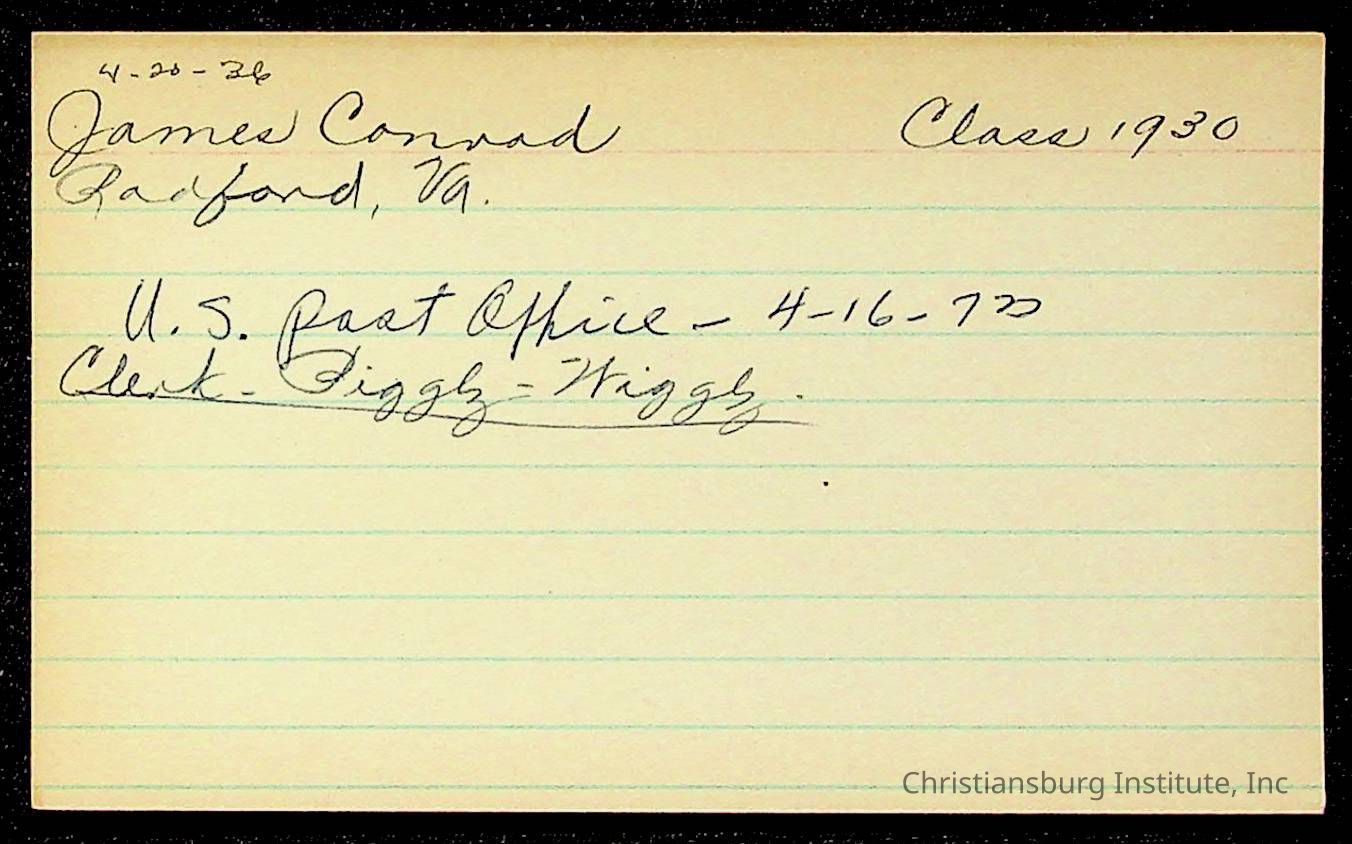 4-20-36
James Conrad Class 1930
Radford, Va.
U.S. Post Office - 4-16-
Clerk - Piggly-Wiggly.
Christiansburg Institute, Inc